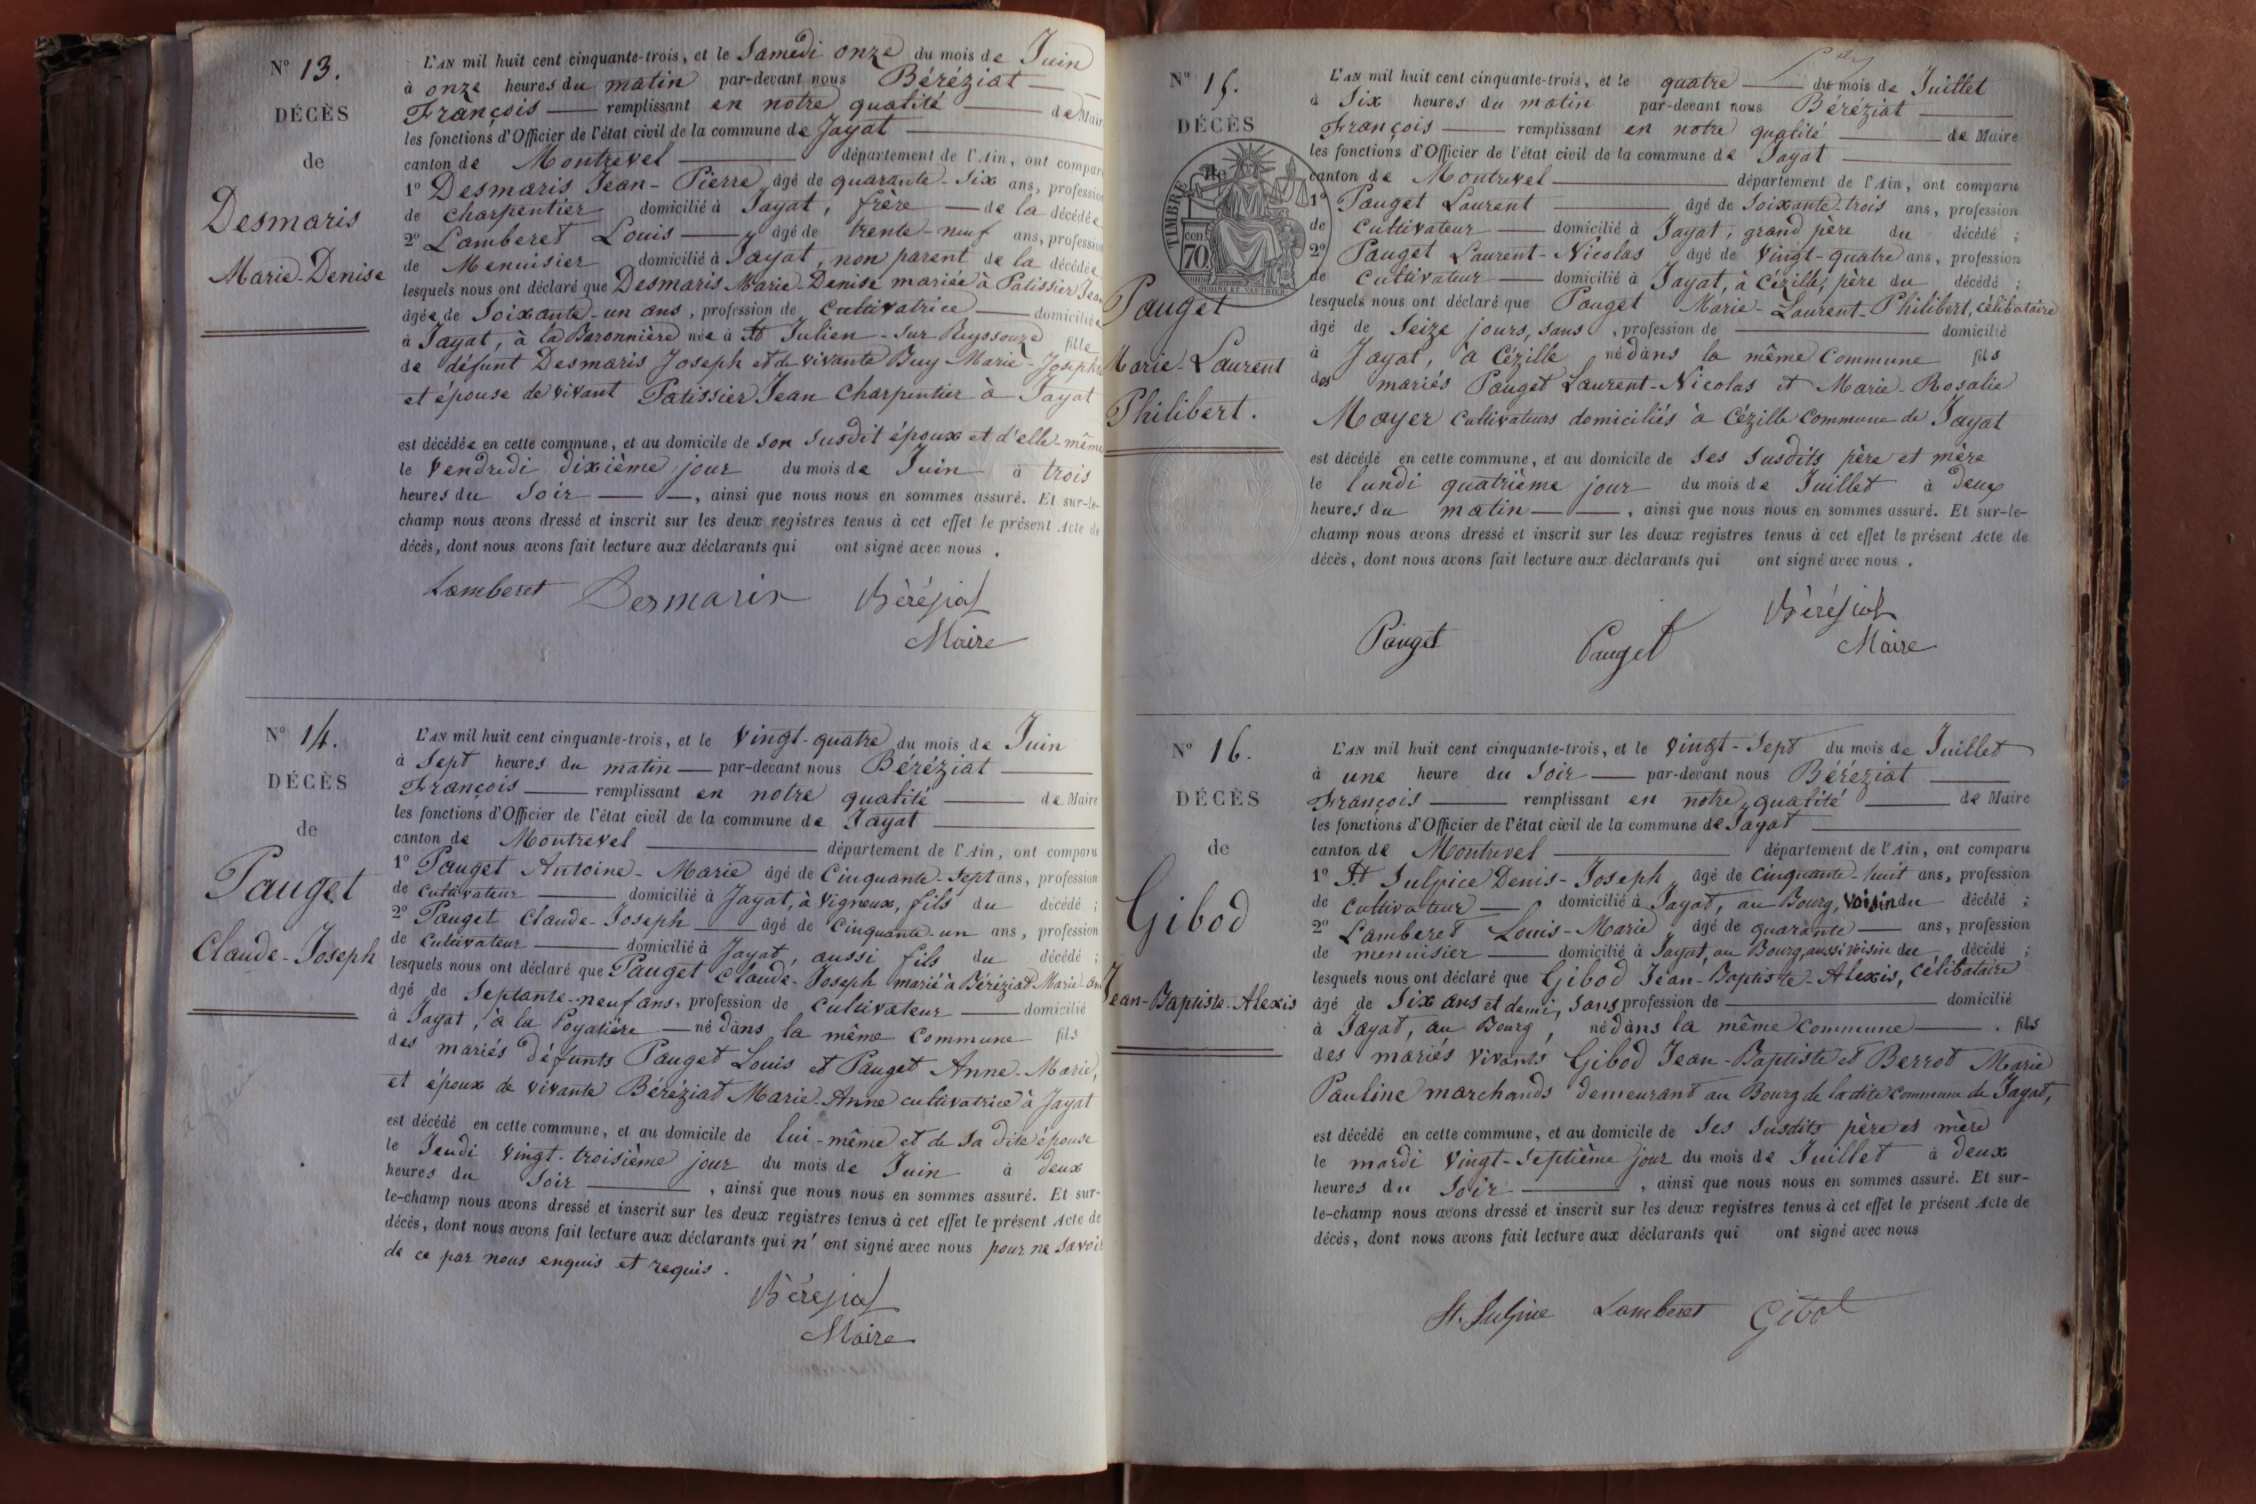 N° 13.
DÉCÈS
de
Desmaris
Marie-Denise
L'AN mil huit cent cinquante-trois, et le Samedi onze du mois de Juin
à onze heures du matin par-devant nous Béréziat
François remplissant en notre qualité de Maire
les fonctions d'Officier de l'état civil de la commune de Jayat
canton de Montrevel département de l'Ain, ont comparu
1° Desmaris Jean-Pierre âgé de quarante-six ans, profession
de charpentier domicilié à Jayat, frère de la décédée
2° Lamberet Louis âgé de trente-neuf ans, profession
de Menuisier domicilié à Jayat, non parent de la décédée
lesquels nous ont déclaré que Desmaris Marie-Denise mariée à Patissier Jean
âgée de Soixante-un ans, profession de cultivatrice domiciliée
à Jayat, à la Baronnière née à St Julien-sur Reyssouze fille
de défunt Desmaris Joseph et de vivante Buy Marie-Josephe
et épouse de vivant Patissier Jean charpentier à Jayat
est décédée en cette commune, et au domicile de son susdit époux et d'elle-même
le Vendredi dixième jour du mois de Juin à trois
heures du Soir, ainsi que nous nous en sommes assuré. Et sur-le-
champ nous avons dressé et inscrit sur les deux registres tenus à cet effet le présent Acte de
décès, dont nous avons fait lecture aux déclarants qui ont signé avec nous.
Lamberet Desmaris Béréziat
Maire
N° 14.
DÉCÈS
de
Pauget
Claude-Joseph
L'AN mil huit cent cinquante-trois, et le Vingt-quatre du mois de Juin
à Sept heures du matin par-devant nous Béréziat
François remplissant en notre qualité de Maire
les fonctions d'Officier de l'état civil de la commune de Jayat
canton de Montrevel département de l'Ain, ont comparu
1° Pauget Antoine-Marie âgé de Cinquante-Sept ans, profession
de cultivateur domicilié à Jayat, à Vigneux, fils du décédé ;
2° Pauget Claude-Joseph âgé de Cinquante-un ans, profession
de cultivateur domicilié à Jayat, aussi fils du décédé ;
lesquels nous ont déclaré que Pauget Claude-Joseph marié à Béréziat Marie-Anne
âgé de Septante-neuf ans, profession de cultivateur domicilié
à Jayat, à la Poyatière né dans la même commune fils
des mariés défunts Pauget Louis et Pauget Anne-Marie,
et époux de vivante Béréziat Marie-Anne cultivatrice à Jayat
est décédé en cette commune, et au domicile de lui-même et de sa dite épouse
le Jeudi vingt-troisième jour du mois de Juin à deux
heures du Soir, ainsi que nous nous en sommes assuré. Et sur-
le-champ nous avons dressé et inscrit sur les deux registres tenus à cet effet le présent Acte de
décès, dont nous avons fait lecture aux déclarants qui n'ont signé avec nous pour ne savoir
de ce par nous enquis et requis.
Béréziat
Maire
N° 15.
DÉCÈS
de
TIMBRE
cen
70
Pauget
Marie-Laurent
Philibert.
L'AN mil huit cent cinquante-trois, et le quatre du mois de Juillet
à Six heures du matin par-devant nous Béréziat
François remplissant en notre qualité de Maire
les fonctions d'Officier de l'état civil de la commune de Jayat
canton de Montrevel département de l'Ain, ont comparu
1° Pauget Laurent âgé de Soixante-trois ans, profession
de cultivateur domicilié à Jayat, grand père du décédé ;
2° Pauget Laurent-Nicolas âgé de Vingt-quatre ans, profession
de cultivateur domicilié à Jayat, à Cézille, père du décédé ;
lesquels nous ont déclaré que Pauget Marie-Laurent-Philibert, célibataire
âgé de Seize jours, sans, profession de domicilié
à Jayat, à Cézille né dans la même commune fils
des mariés Pauget Laurent-Nicolas et Marie-Rosalie
Mayer cultivateurs domiciliés à Cézille commune de Jayat
est décédé en cette commune, et au domicile de ses susdits père et mère
le lundi quatrième jour du mois de Juillet à deux
heures du matin, ainsi que nous nous en sommes assuré. Et sur-le-
champ nous avons dressé et inscrit sur les deux registres tenus à cet effet le présent Acte de
décès, dont nous avons fait lecture aux déclarants qui ont signé avec nous.
Pauget Pauget Béréziat
Maire
N° 16.
DÉCÈS
de
Gibod
Jean-Baptiste-Alexis
L'AN mil huit cent cinquante-trois, et le vingt-Sept du mois de Juillet
à une heure du Soir par-devant nous Béréziat
François remplissant en notre qualité de Maire
les fonctions d'Officier de l'état civil de la commune de Jayat
canton de Montrevel département de l'Ain, ont comparu
1° St Sulpice Denis-Joseph âgé de cinquante-huit ans, profession
de cultivateur domicilié à Jayat, au Bourg, Voisin du décédé ;
2° Lamberet Louis-Marie âgé de quarante ans, profession
de menuisier domicilié à Jayat, au Bourg, aussi voisin du décédé ;
lesquels nous ont déclaré que Gibod Jean-Baptiste-Alexis, célibataire
âgé de Six ans et demi, sans profession de domicilié
à Jayat, au Bourg, né dans la même commune. fils
des mariés vivants Gibod Jean-Baptiste et Berrod Marie
Pauline marchands demeurant au Bourg de la dite commune de Jayat,
est décédé en cette commune, et au domicile de ses susdits père et mère
le mardi vingt-septième jour du mois de Juillet à deux
heures du Soir, ainsi que nous nous en sommes assuré. Et sur-
le-champ nous avons dressé et inscrit sur les deux registres tenus à cet effet le présent Acte de
décès, dont nous avons fait lecture aux déclarants qui ont signé avec nous
St. Sulpice Lamberet Gibod